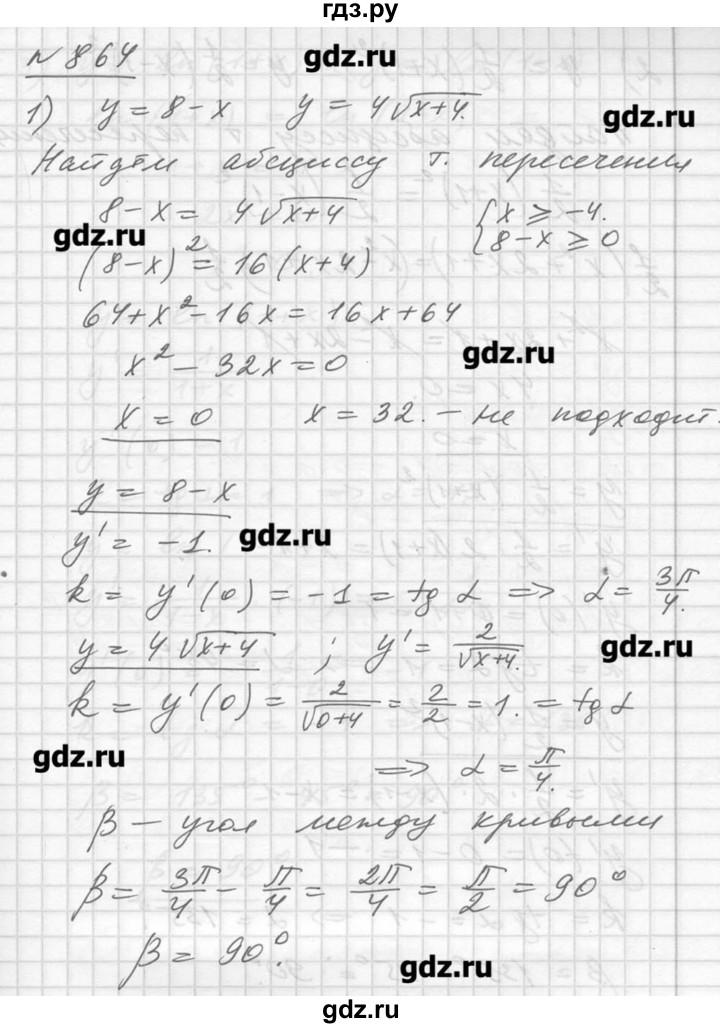 гдз.ру
№864
gdz.ru
1) y = 8-x   y = 4√(x+4).
gdz.ru
Найдём абсциссу т. пересечения
8-x = 4√(x+4)   {x ⩾ -4.
gdz.ru
{8-x ⩾ 0
(8-x)² = 16(x+4)
64+x²-16x = 16x+64
x² - 32x = 0
gdz.ru
x = 0   x = 32. - не подходит.
y = 8-x
y' = -1.
gdz.ru
k = y'(0) = -1 = tg α => α = 3π/4.
y = 4√(x+4) ; y' = 2/√(x+4).
gdz.ru
k = y'(0) = 2/√(0+4) = 2/2 = 1. = tg α
gdz.ru
=> α = π/4.
β - угол между кривыми
β = 3π/4 - π/4 = 2π/4 = π/2 = 90°
β = 90°.
gdz.ru
gdz.ru